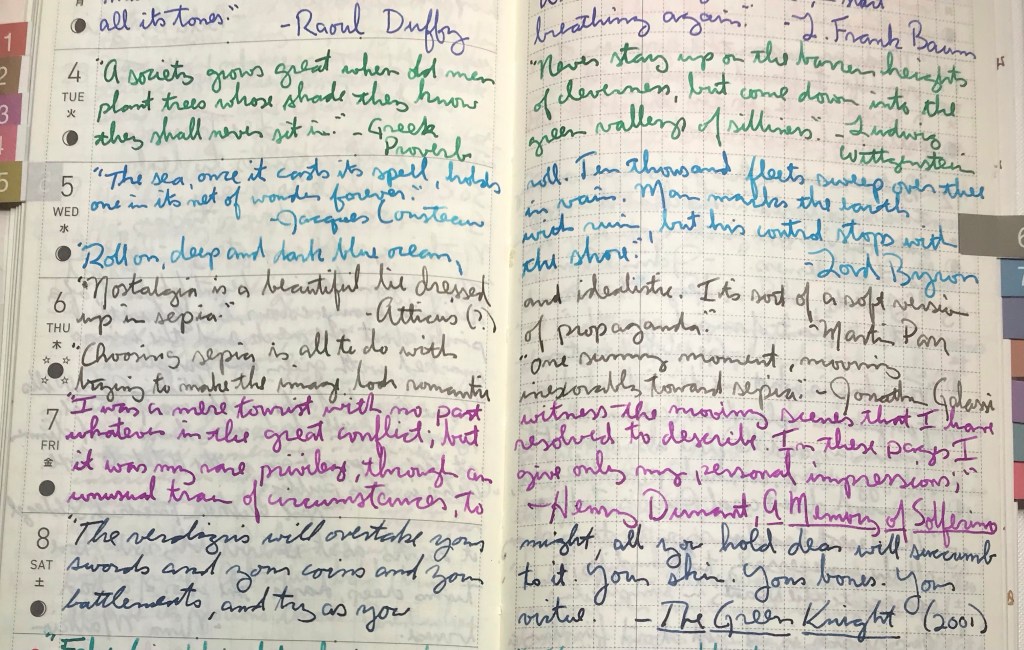 all its tones." -Raoul Duffy
4 "A society grows great when old men
TUE plant trees whose shade they know
火 they shall never sit in." -Greek
Proverb
5 "The sea, once it casts its spell, holds
WED one in its net of wonder forever."
水 -Jacques Cousteau
"Roll on, deep and dark blue ocean,
6 "Nostalgia is a beautiful lie dressed
THU up in sepia." -Atticus (?)
木 "Choosing sepia is all to do with
trying to make the image look romantic
7 "I was a mere tourist with no part
FRI whatever in the great conflict; but
金 it was my rare privilege, through an
unusual train of circumstances, to
8 "The verdigris will overtake your
SAT swords and your coins and your
土 battlements, and try as you
breathing again." -L. Frank Baum
"Never stay up on the barren heights
of cleverness, but come down into the
green valleys of silliness." -Ludwig
Wittgenstein
roll. Ten thousand fleets sweep over thee
in vain. Man marks the earth
with ruin, but his control stops with
the shore." -Lord Byron
and idealistic. It's sort of a soft version
of propaganda." -Martin Parr
"One sunny moment, moving
inexorably toward sepia." -Jonathan Galassi
witness the moving scenes that I have
resolved to describe. In these pages I
give only my personal impressions;"
-Henry Dunant, A Memory of Solferino
might, all you hold dear will succumb
to it. Your skin. Your bones. Your
virtue. -The Green Knight (2001)
1
2
3
5
6
7